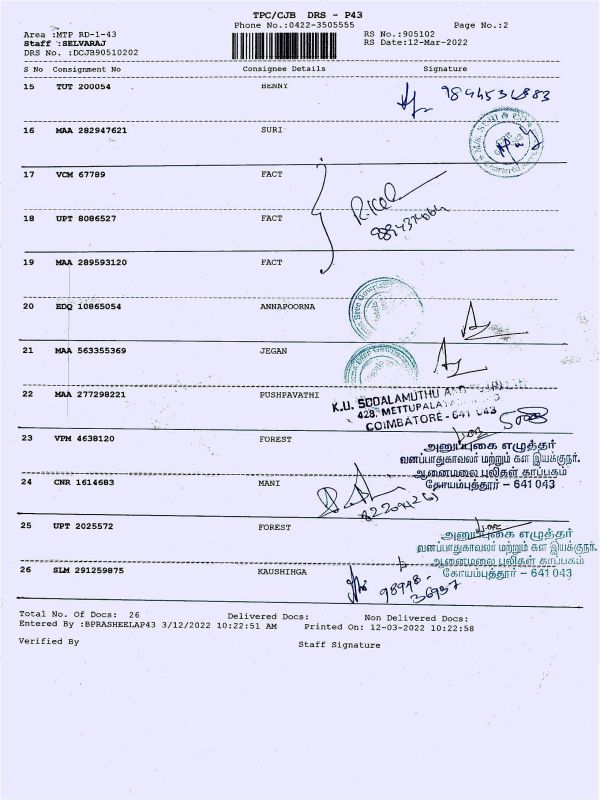 TPC/CJB DRS - P43
Phone No.:0422-3505555
Page No.:2
Area :MTP RD-1-43
RS No.:905102
Staff :SELVARAJ
RS Date:12-Mar-2022
DRS No. :DCJB90510202
S No Consignment No Consignee Details Signature
15 TUT 200054 BENNY
16 MAA 282947621 SURI
17 VCM 67789 FACT
18 UPT 8086527 FACT
19 MAA 289593120 FACT
20 EDQ 10865054 ANNAPOORNA
21 MAA 563355369 JEGAN
22 MAA 277298221 PUSHPAVATHI
K.U. SODALAMUTHU AND
428, METTUPALAYAM
COIMBATORE - 641 043
23 VPM 4638120 FOREST
அனுப்புகை எழுத்தர்
வனப்பாதுகாவலர் மற்றும் கள இயக்குநர்,
ஆனைமலை புலிகள் காப்பகம்
கோயம்புத்தூர் - 641 043
24 CNR 1614683 MANI
25 UPT 2025572 FOREST
அனுப்புகை எழுத்தர்
வனப்பாதுகாவலர் மற்றும் கள இயக்குநர்,
ஆனைமலை புலிகள் காப்பகம்
கோயம்புத்தூர் - 641 043
26 SLM 291259875 KAUSHIHGA
Total No. Of Docs: 26 Delivered Docs: Non Delivered Docs:
Entered By :BPRASHEELAP43 3/12/2022 10:22:51 AM Printed On: 12-03-2022 10:22:58
Verified By Staff Signature